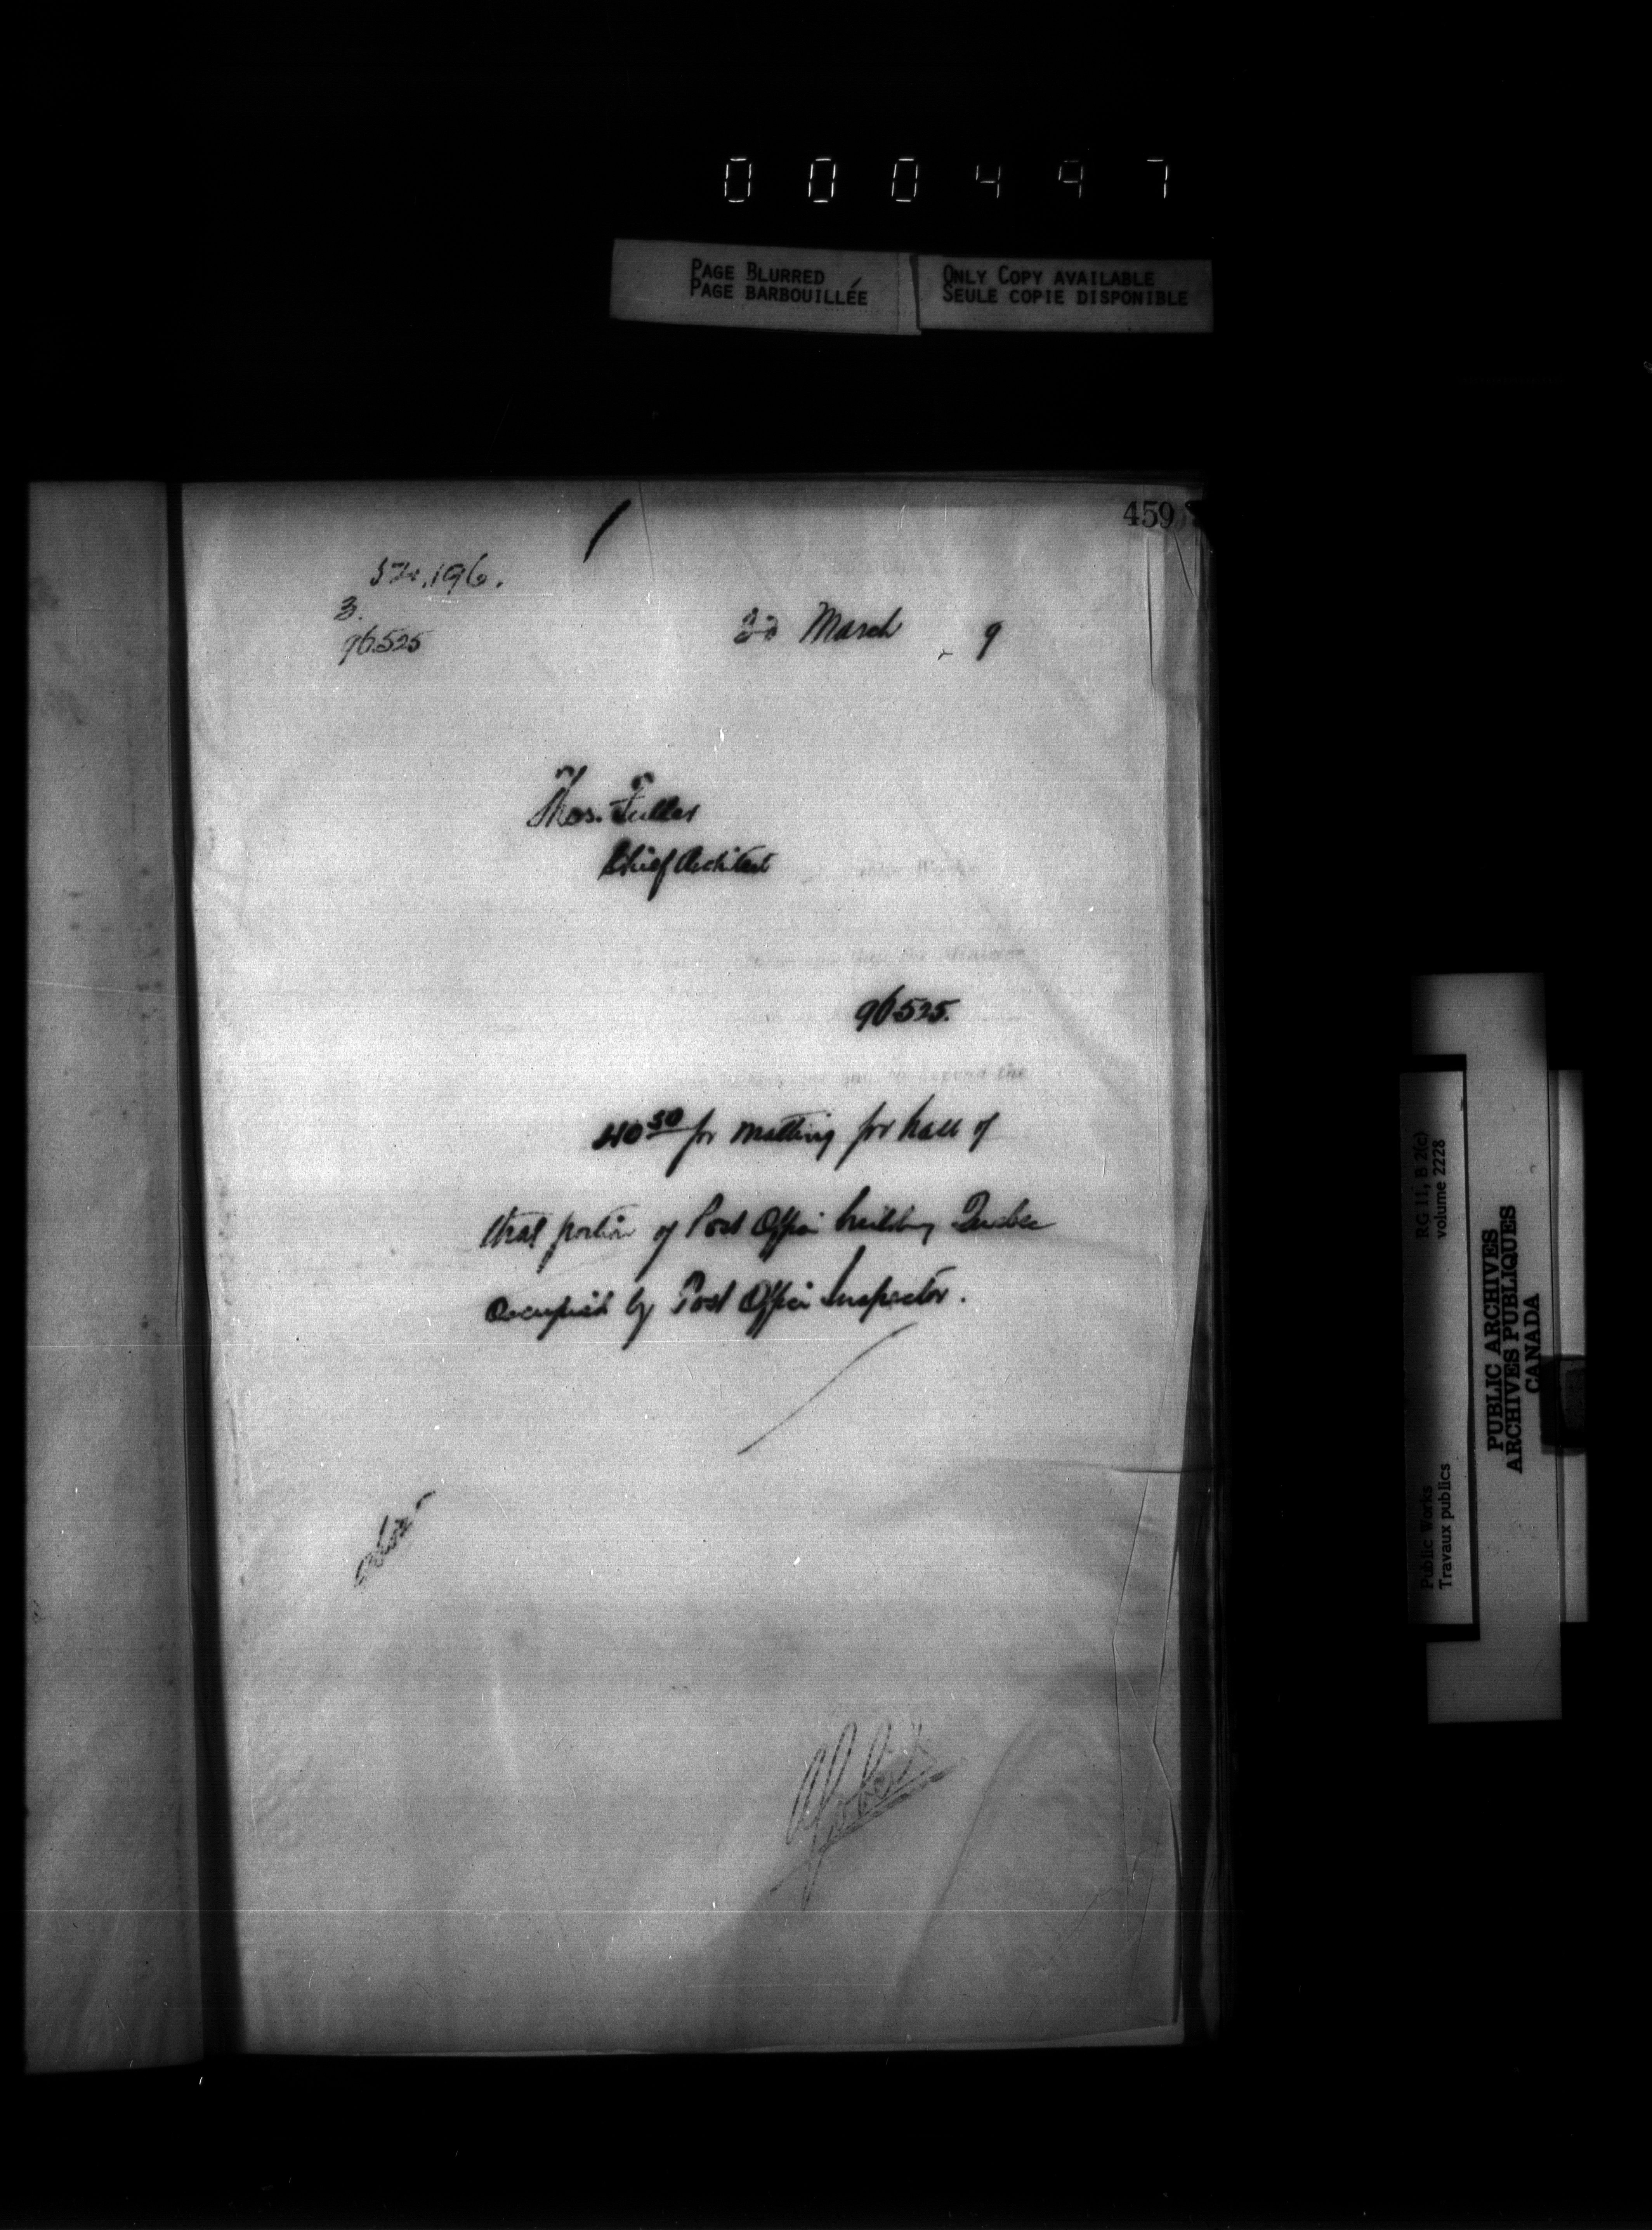 000497
PAGE BLURRED
PAGE BARBOUILLÉE
ONLY COPY AVAILABLE
SEULE COPIE DISPONIBLE
459
196.
3.
96525
March 9
Thos. Fuller
Chief Architect
96525.
40 50 for matting for hall of
that portion of Post Office building Quebec
Occupied by Post Office Inspector.
RG 11, B 2(c)
volume 2228
Public Works
Travaux publics
PUBLIC ARCHIVES
ARCHIVES PUBLIQUES
CANADA